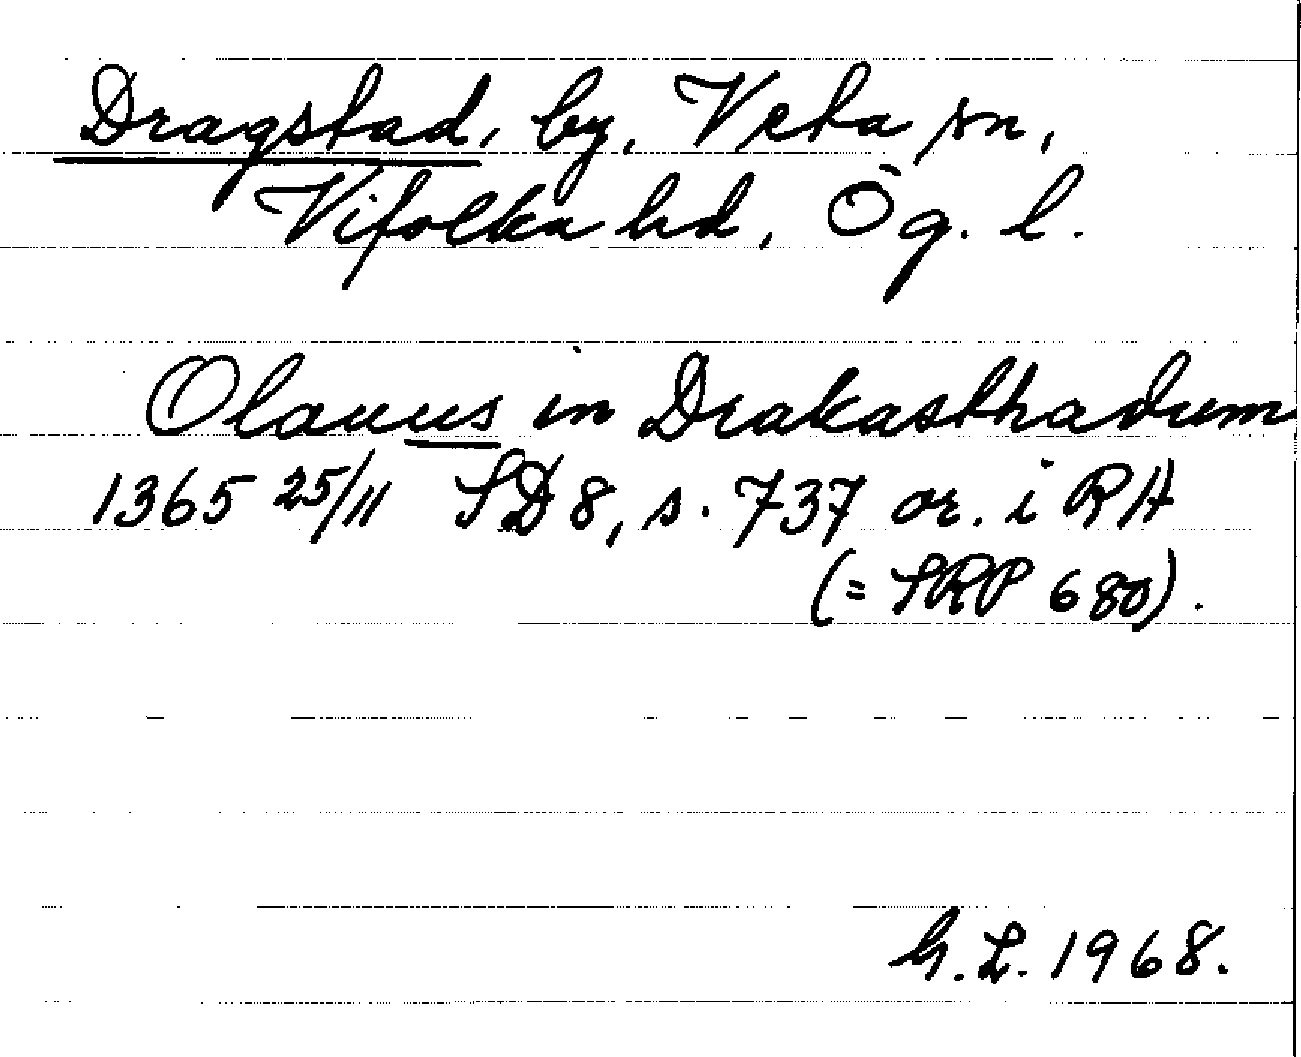 Dragstad, by, Veta sn,
Vifolka hd, Ög. l.
Olauus in Drakasthadum
1365 25/11 SD 8, s. 737 or. i RA
(= SRP 680).
G. L. 1968.